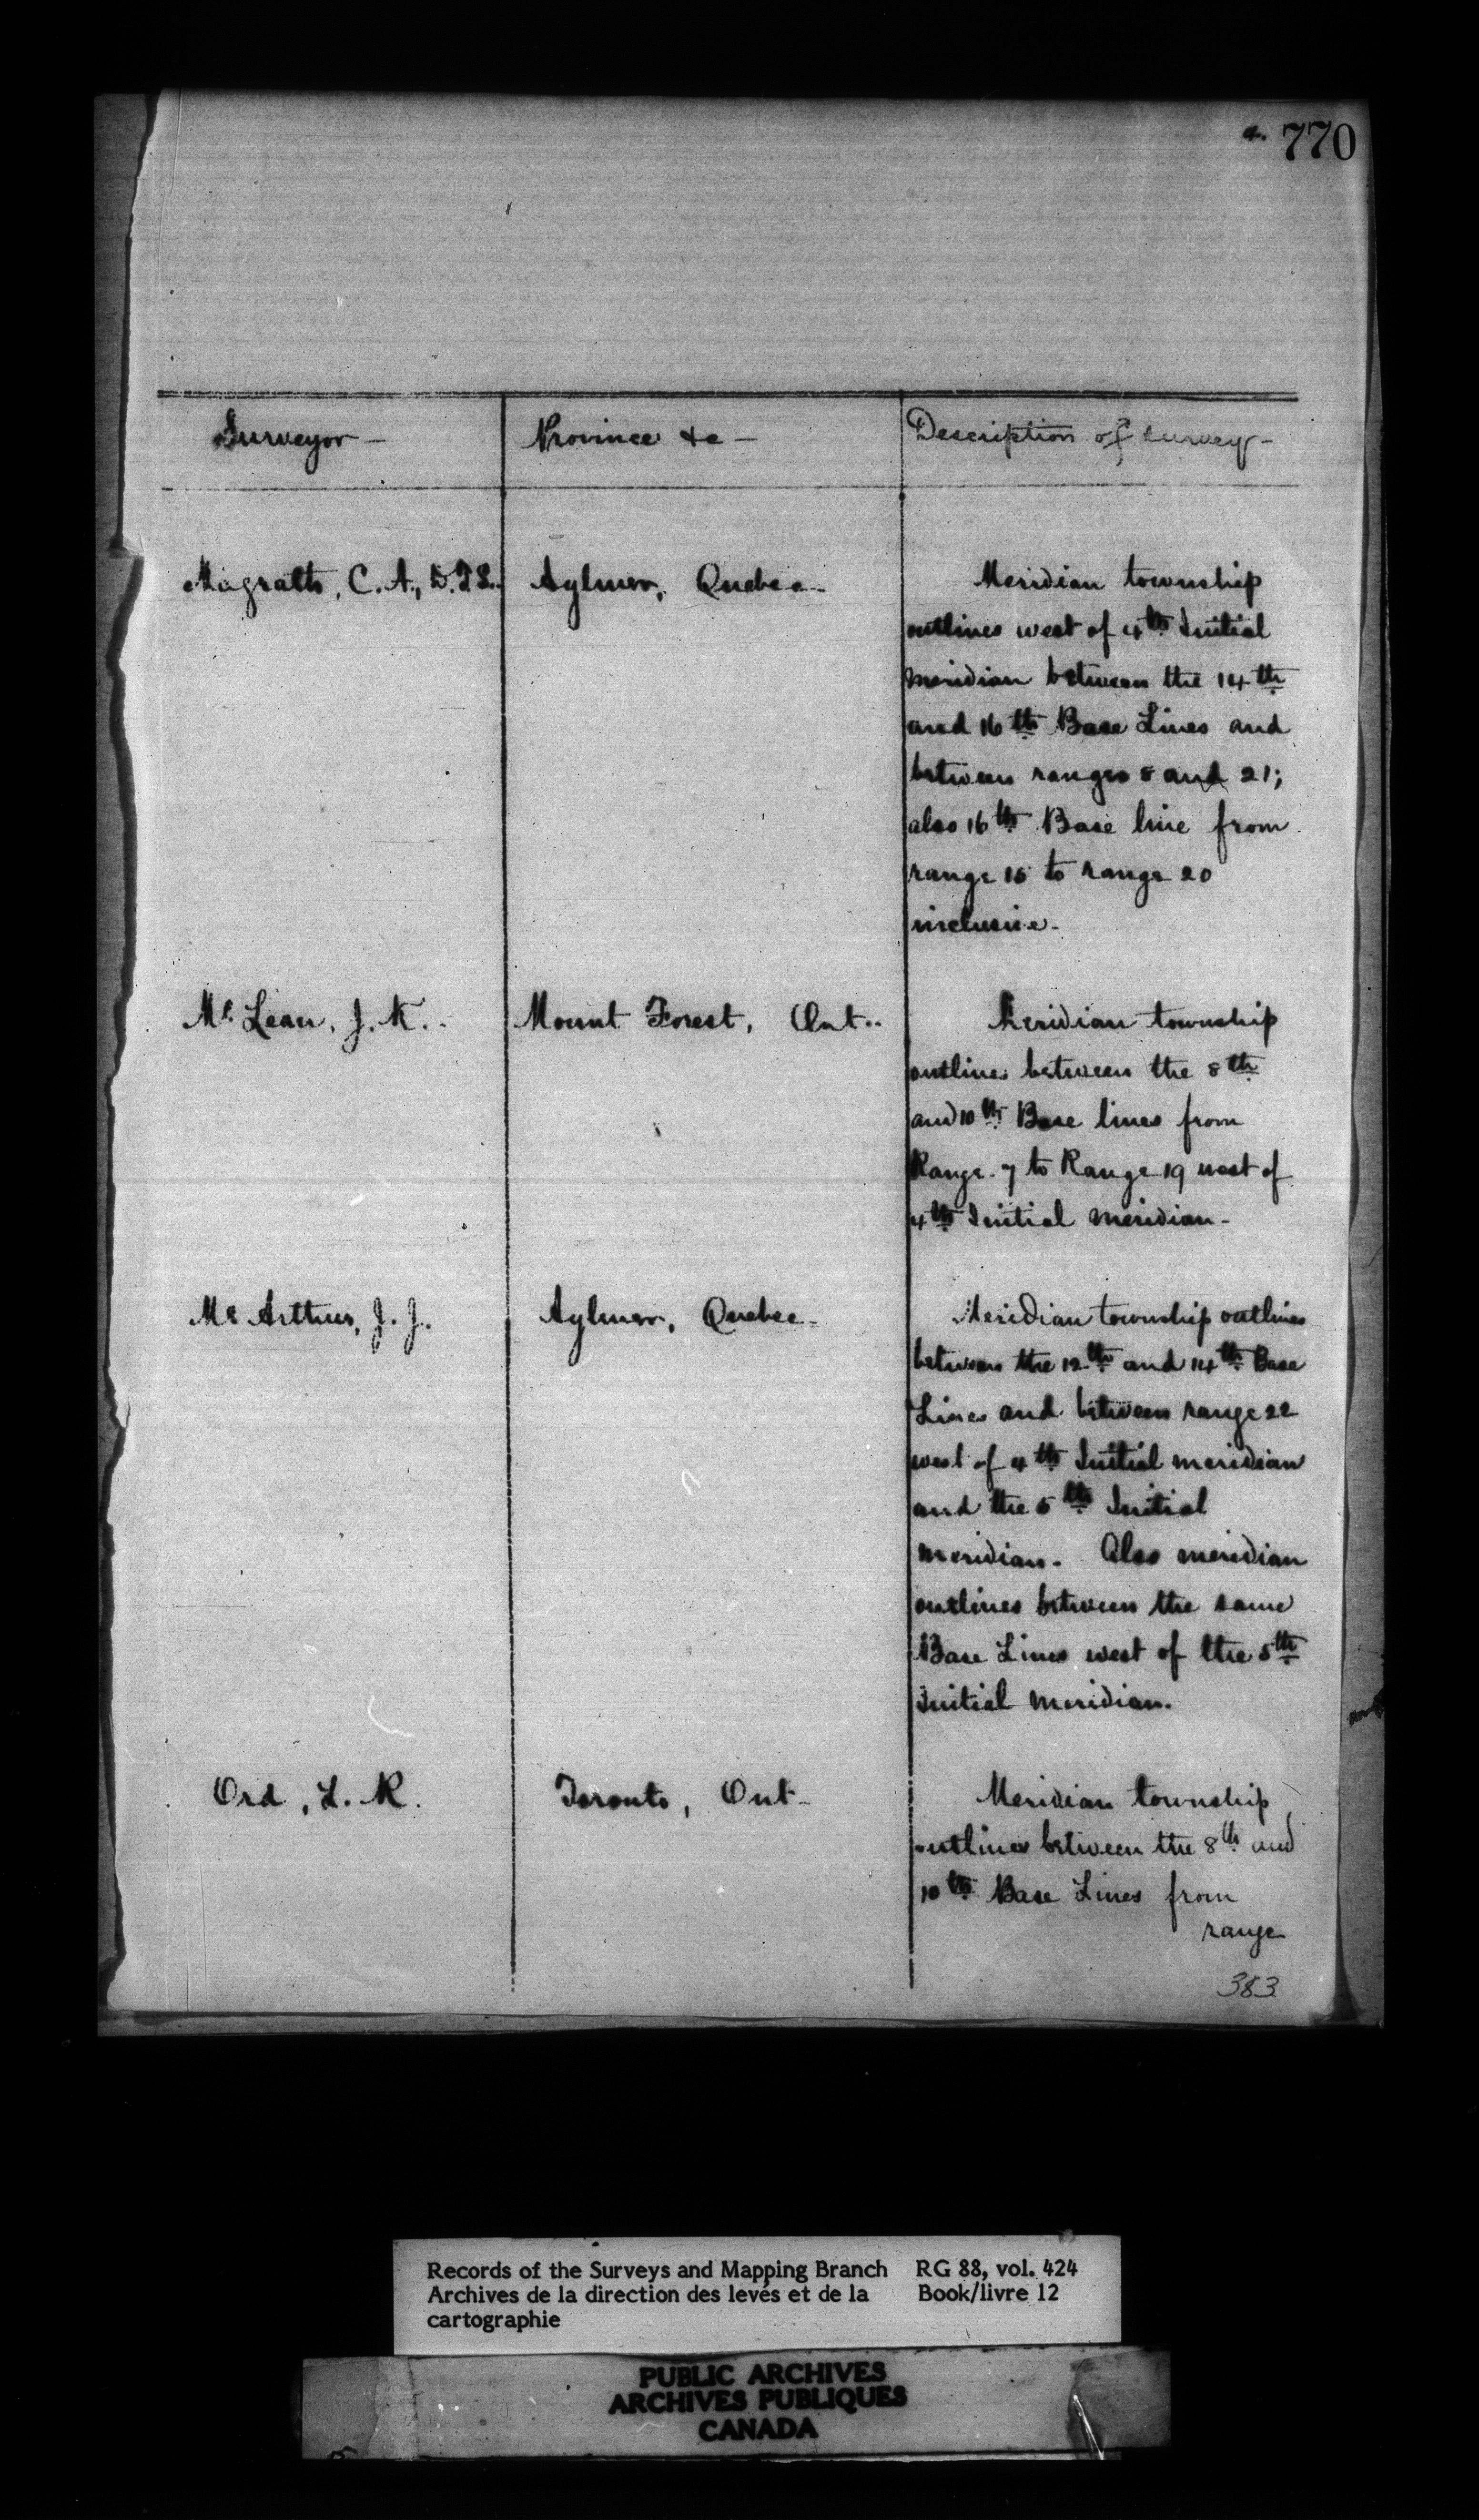 770
Surveyor - Province &c - Description of survey -
Magrath, C. A., D.T.S. Aylmer, Quebec - Meridian township
outlines west of 4th Initial
meridian between the 14th
and 16th Base Lines and
between ranges 8 and 21;
also 16th Base line from
range 15 to range 20
inclusive -
Mc Lean, J. K. Mount Forest, Ont. Meridian township
outlines between the 8th
and 10th Base lines from
Range 7 to Range 19 west of
4th Initial meridian -
Mc Arthur, J. J. Aylmer, Quebec - Meridian township outlines
between the 12th and 14th Base
Lines and between range 22
west of 4th Initial meridian
and the 5th Initial
meridian - Also meridian
outlines between the same
Base Lines west of the 5th
Initial meridian.
Ord, L. R. Toronto, Ont - Meridian township
outlines between the 8th and
10th Base Lines from
range
383
Records of the Surveys and Mapping Branch RG 88, vol. 424
Archives de la direction des levés et de la Book/livre 12
cartographie
PUBLIC ARCHIVES
ARCHIVES PUBLIQUES
CANADA